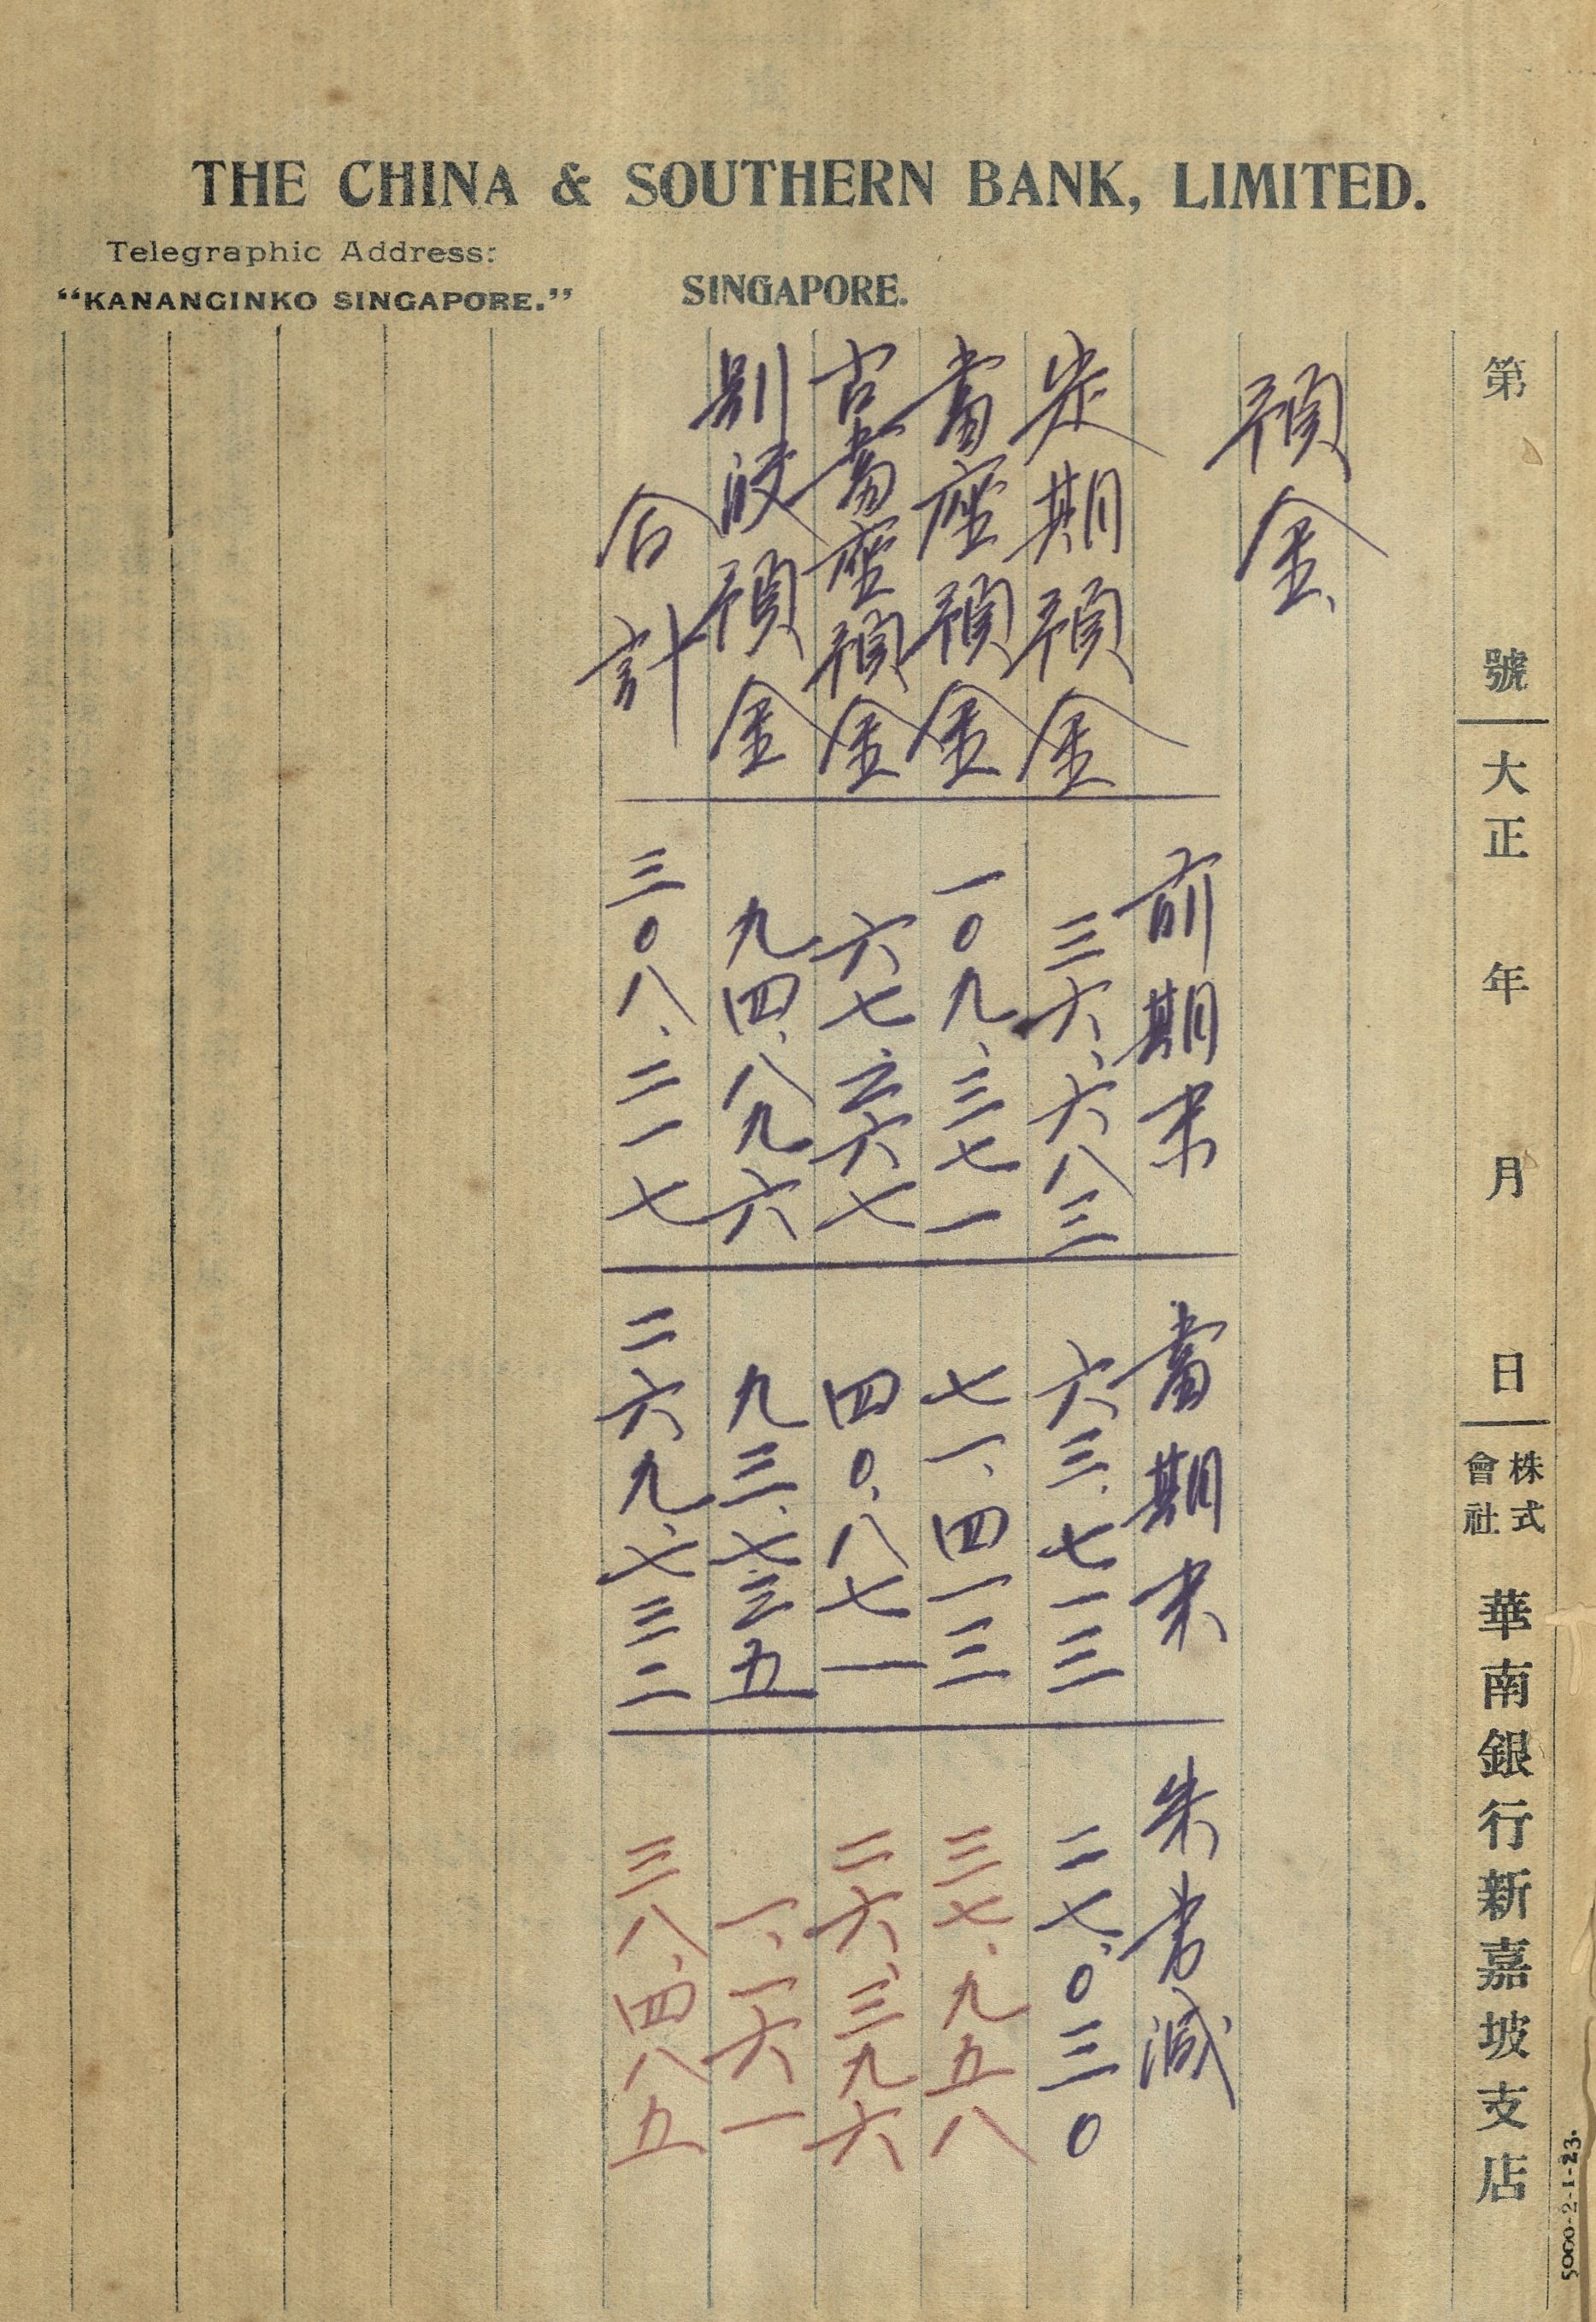 THE CHINA & SOUTHERN BANK, LIMITED.
Telegraphic Address:
“KANANGINKO SINGAPORE.”
SINGAPORE.
第 號 大正 年 月 日 株式會社 華南銀行新嘉坡支店
5000-2-1-23.
預金
前期末 當期末 朱書減
定期預金 三六、六八三 六三、七一三 二七、〇三〇
當座預金 一〇九、三七一 七一、四一三 三七、九五八
小口當座預金 六七、二六七 四〇、八七一 二六、三九六
別段預金 九四、八九六 九三、七三五 一、一六一
合計 三〇八、二一七 二六九、七三二 三八、四八五